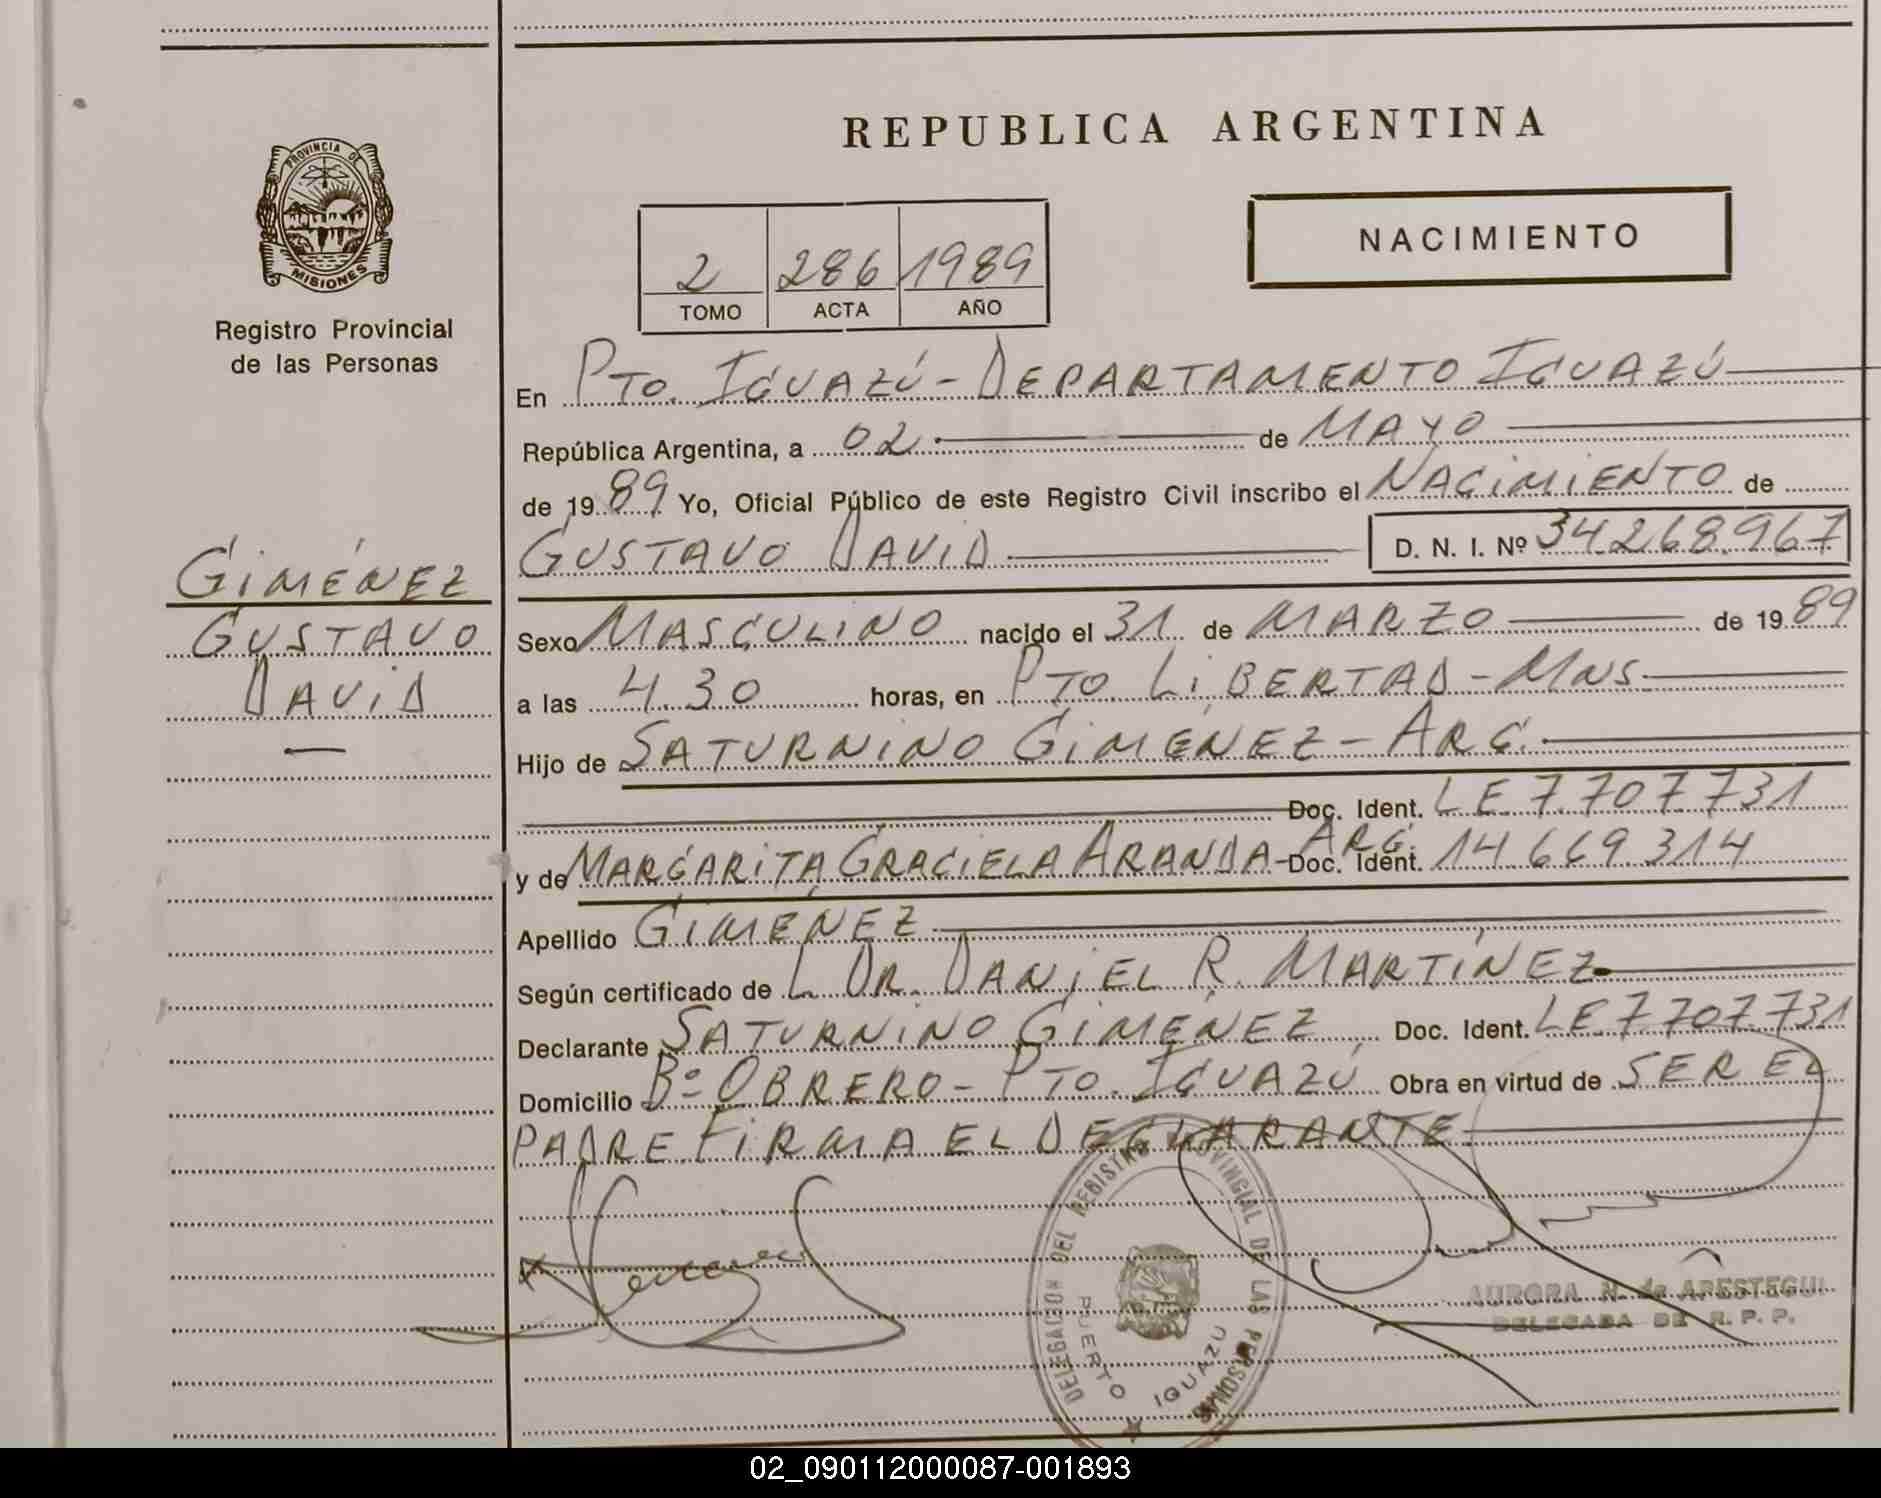 REPUBLICA ARGENTINA
PROVINCIA DE
MISIONES
Registro Provincial
de las Personas
2 286 1989
TOMO ACTA AÑO
NACIMIENTO
En PTO. IGUAZÚ - DEPARTAMENTO IGUAZÚ
República Argentina, a 02 de MAYO
de 1989 Yo, Oficial Público de este Registro Civil inscribo el NACIMIENTO de
GUSTAVO DAVID D. N. I. Nº 34268967
GIMÉNEZ
GUSTAVO
DAVID
Sexo MASCULINO nacido el 31 de MARZO de 1989
a las 4.30 horas, en PTO. LIBERTAD - MNS
Hijo de SATURNINO GIMÉNEZ - ARG.
Doc. Ident. LE 7.707.731
y de MARGARITA GRACIELA ARANDA - ARG. Doc. Ident. 14.669.314
Apellido GIMÉNEZ
Según certificado de L. DR. DANIEL R. MARTÍNEZ
Declarante SATURNINO GIMÉNEZ Doc. Ident. LE 7707731
Domicilio Bº OBRERO - PTO. IGUAZÚ Obra en virtud de SER EL
PADRE FIRMA EL DECLARANTE
DELEGACION DEL REGISTRO PROVINCIAL DE LAS PERSONAS
PUERTO IGUAZU
AURORA N. de ARESTEGUI
DELEGADA DE R. P. P.
02_090112000087-001893